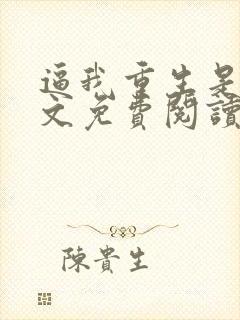 逼我重生是
文免費閱讀
陳貴生